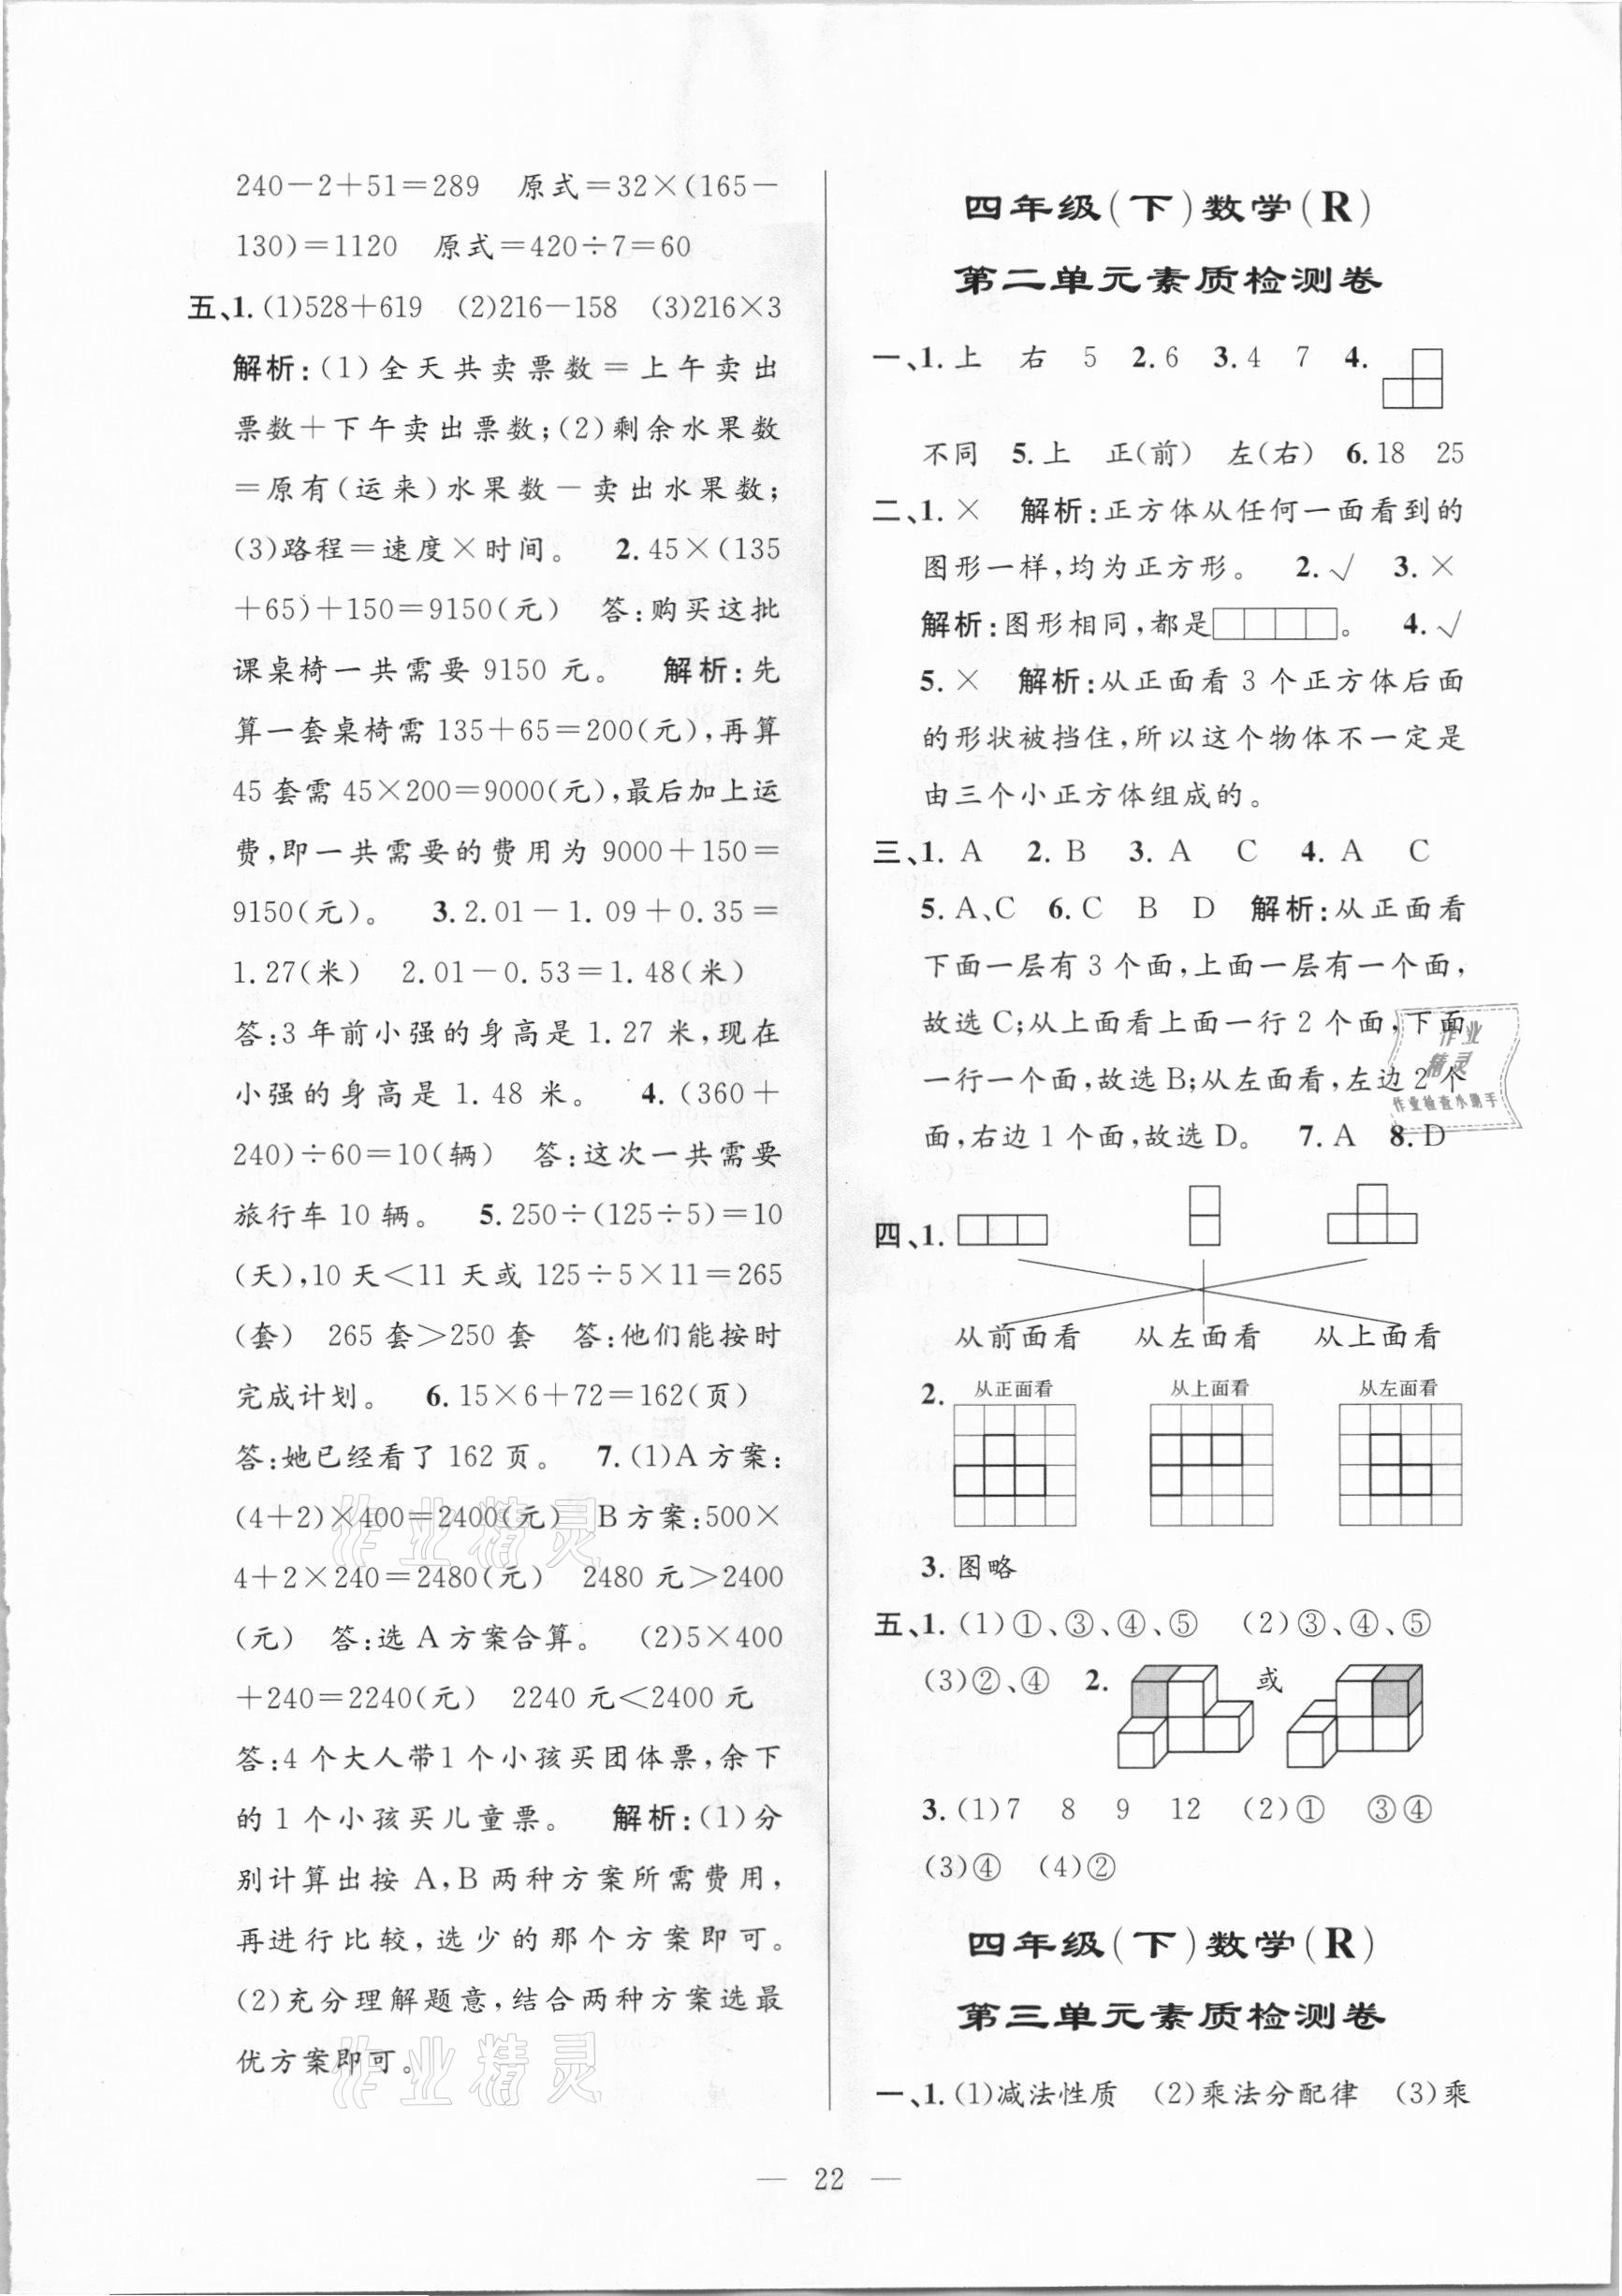 240－2＋51＝289　原式＝32×(165－
130)＝1120　原式＝420÷7＝60
五、1. (1)528＋619　(2)216－158　(3)216×3
解析:(1)全天共卖票数＝上午卖出
票数＋下午卖出票数;(2)剩余水果数
＝原有(运来)水果数－卖出水果数;
(3)路程＝速度×时间。　2. 45×(135
＋65)＋150＝9150(元)　答:购买这批
课桌椅一共需要 9150 元。　解析:先
算一套桌椅需 135＋65＝200(元),再算
45 套需 45×200＝9000(元),最后加上运
费,即一共需要的费用为 9000＋150＝
9150(元)。　3. 2.01－1.09＋0.35＝
1.27(米)　2.01－0.53＝1.48(米)
答:3 年前小强的身高是 1.27 米,现在
小强的身高是 1.48 米。　4. (360＋
240)÷60＝10(辆)　答:这次一共需要
旅行车 10 辆。　5. 250÷(125÷5)＝10
(天),10 天＜11 天或 125÷5×11＝265
(套)　265 套＞250 套　答:他们能按时
完成计划。　6. 15×6＋72＝162(页)
答:她已经看了 162 页。　7. (1)A 方案:
(4＋2)×400＝2400(元)　B 方案:500×
4＋2×240＝2480(元)　2480 元＞2400
(元)　答:选 A 方案合算。　(2)5×400
＋240＝2240(元)　2240 元＜2400 元
答:4 个大人带1 个小孩买团体票,余下
的 1 个小孩买儿童票。　解析:(1)分
别计算出按 A,B 两种方案所需费用,
再进行比较,选少的那个方案即可。
(2)充分理解题意,结合两种方案选最
优方案即可。
作业精灵
作业精灵
四年级(下)数学(R)
第二单元素质检测卷
一、1. 上　右　5　2. 6　3. 4　7　4.
不同　5. 上　正(前)　左(右)　6. 18　25
二、1. ×　解析:正方体从任何一面看到的
图形一样,均为正方形。　2. √　3. ×
解析:图形相同,都是　。　4. √
5. ×　解析:从正面看 3 个正方体后面
的形状被挡住,所以这个物体不一定是
由三个小正方体组成的。
三、1. A　2. B　3. A　C　4. A　C
5. A、C　6. C　B　D　解析:从正面看
下面一层有 3 个面,上面一层有一个面,
故选 C;从上面看上面一行 2 个面,下面
一行一个面,故选 B;从左面看,左边 2 个
面,右边 1 个面,故选 D。　7. A　8. D
作业
精灵
作业检查小助手
四、1.
从前面看　从左面看　从上面看
2. 从正面看　从上面看　从左面看
3. 图略
五、1. (1)①、③、④、⑤　(2)③、④、⑤
(3)②、④　2.　或
3. (1)7　8　9　12　(2)①　③④
(3)④　(4)②
四年级(下)数学(R)
第三单元素质检测卷
一、1. (1)减法性质　(2)乘法分配律　(3)乘
— 22 —